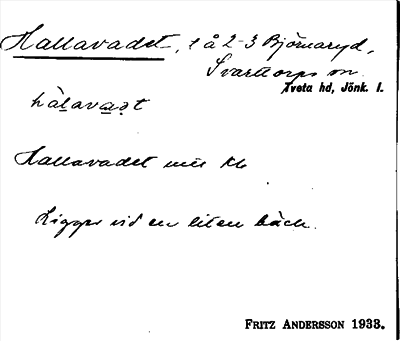 Hallavadet, t å 2-3 Björnaryd,
Svarttorps sn.
Tveta hd, Jönk. l.
hàlavadət
Hallavadet
Ligger vid en liten bäck.
FRITZ ANDERSSON 1933.